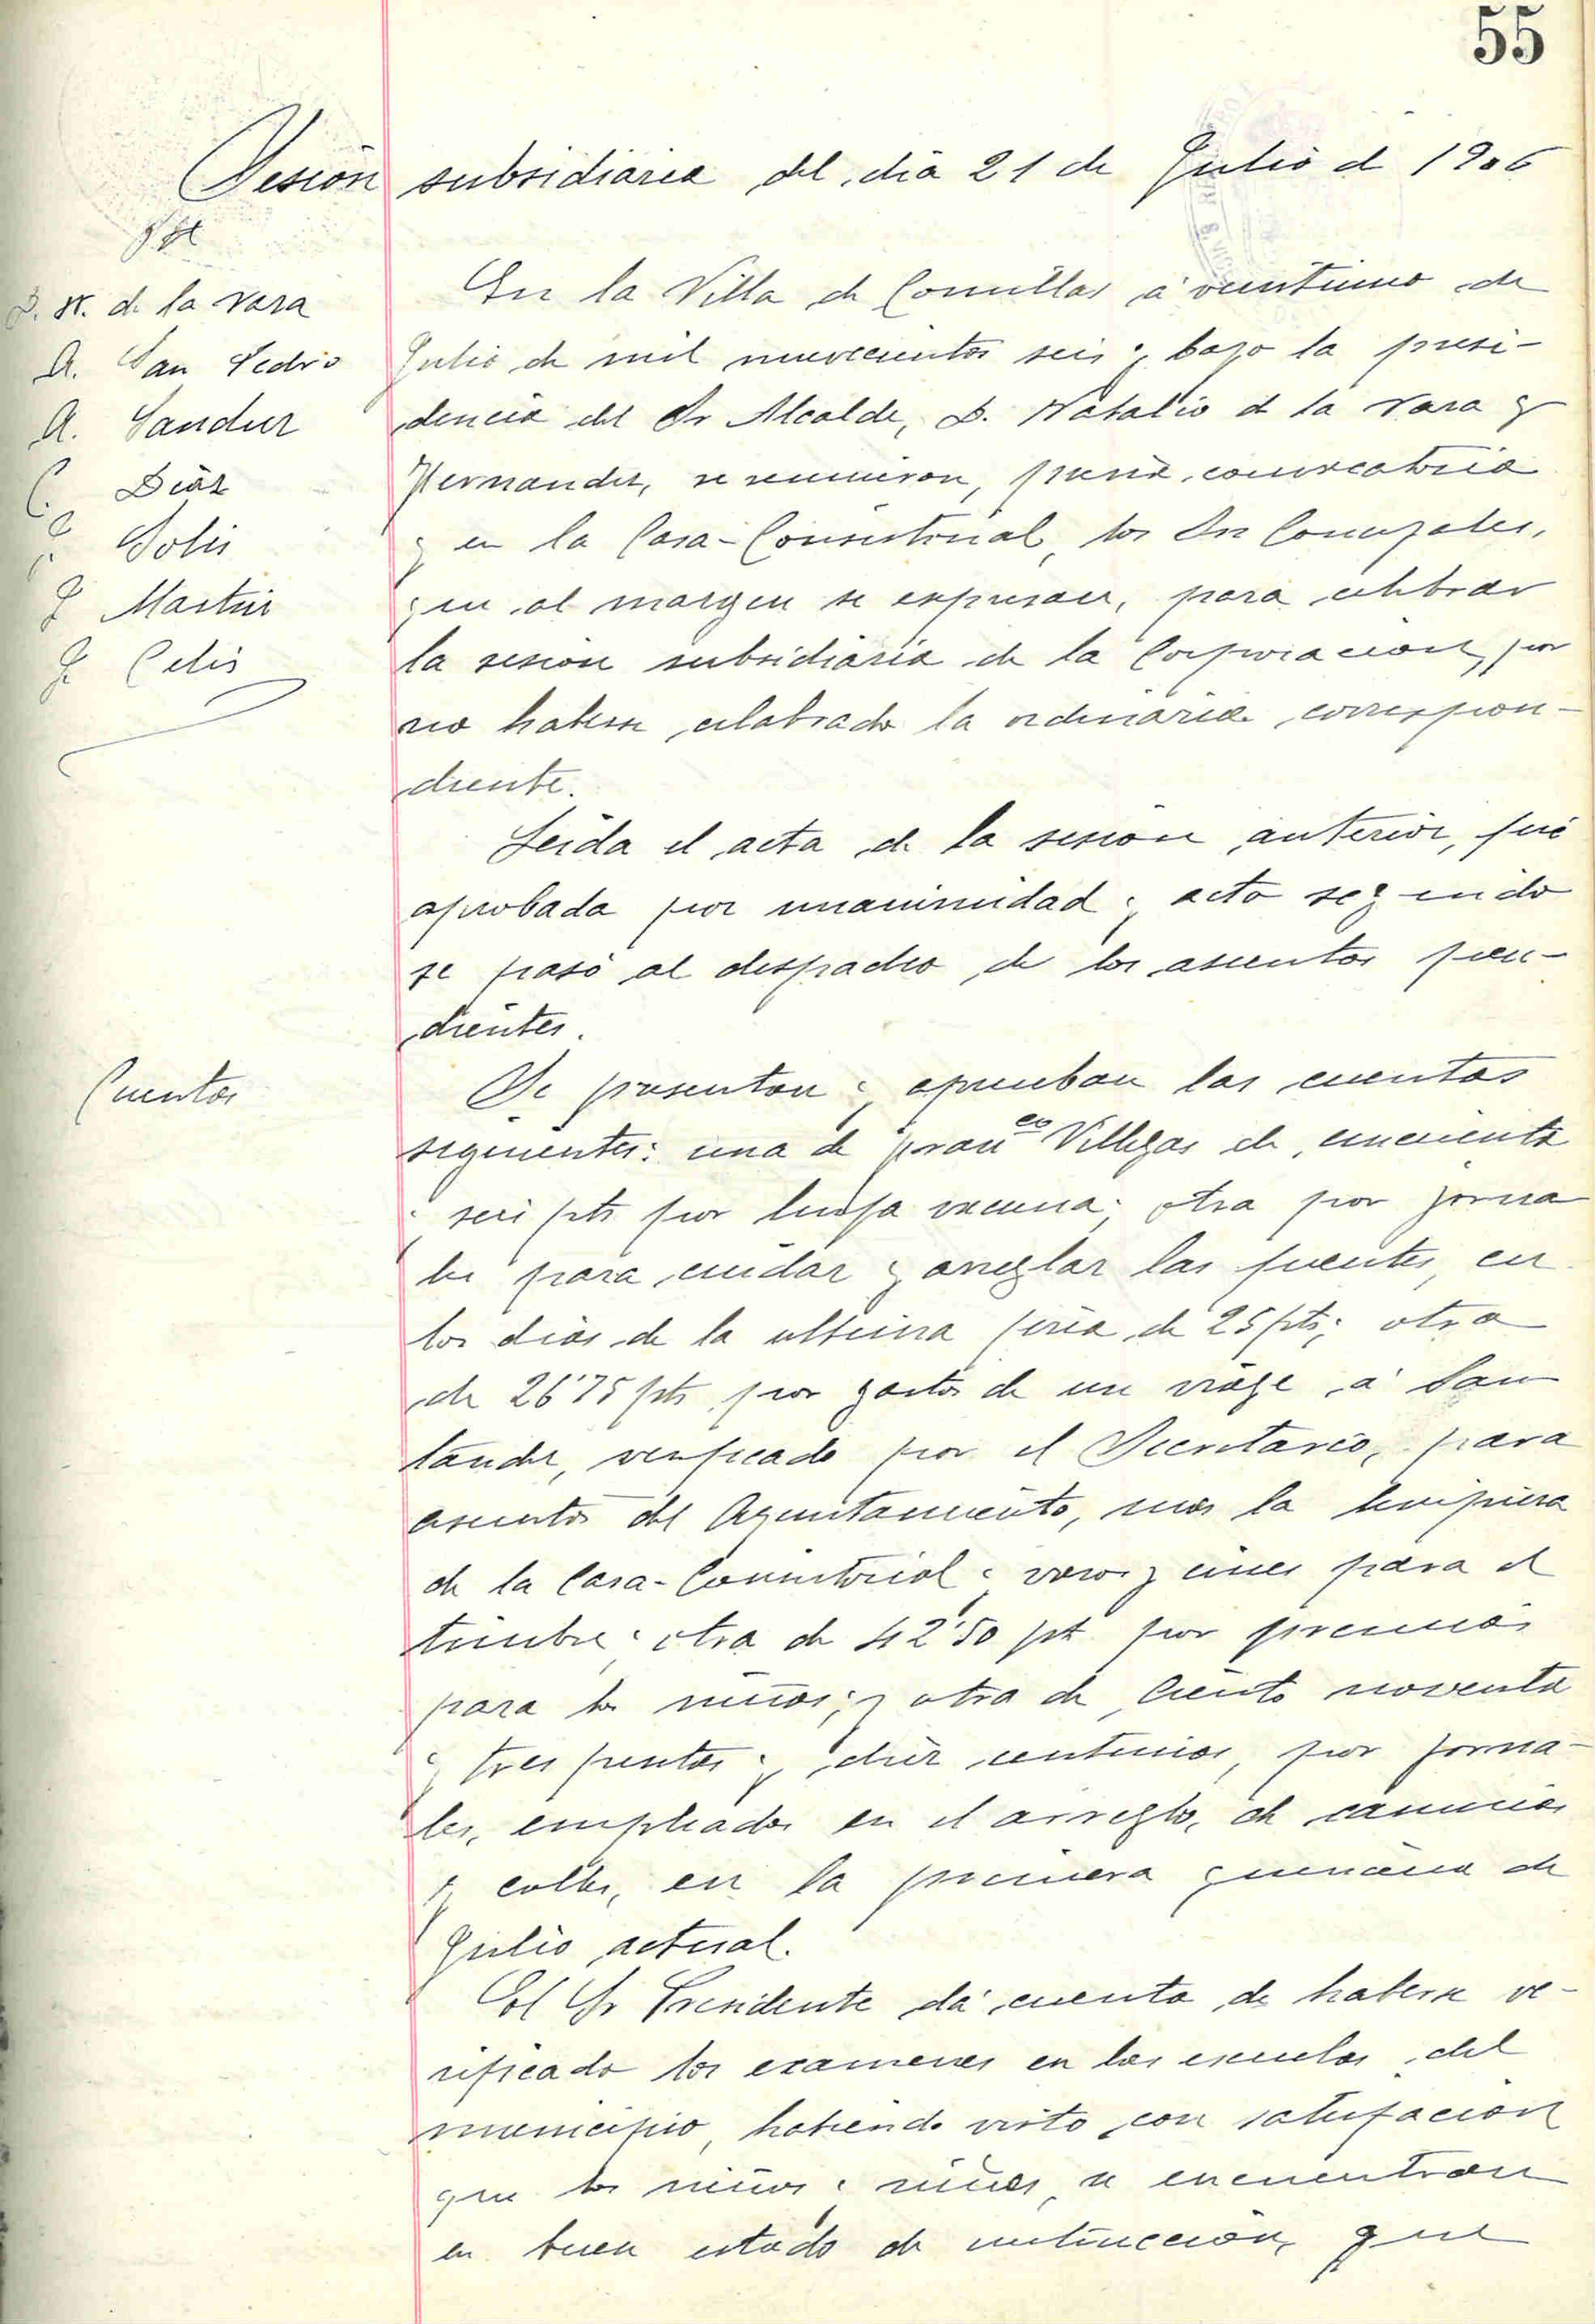 55
Sesión subsidiaria del dia 21 de Julio d 1906
En la Villa de Comillas á veintiuno de
Julio de mil novecientos seis y bajo la presi-
dencia del Sr Alcalde, D. Natalio d la Vara y
Hernandez, se reunieron, previa convocatoria
y en la Casa-Consistorial, los Sres Concejales,
que al margen se expresan, para celebrar
la sesion subsidiaria de la Corporacion, por
no haberse celebrado la ordinaria correspon-
diente.
Leida el acta de la sesion anterior, fué
aprobada por unanimidad y acto seguido
se pasó al despacho de los asuntos pen-
dientes.
Se presentan y aprueban las cuentas
siguientes: una de Franco Villegas de cincuenta
y seis pts por vacuna; otra por jorna
les para cuidar y arreglar las fuentes, en
los dias de la ultima feria de 25 pts; otra
de 26'75 pts por gastos de un viage á San
tander, verificado por el Secretario, para
asuntos del Ayuntamiento, mas la limpieza
de la Casa-Consistorial y para el
timbre; otra de 42'50 pts por premios
para los niños; y otra de ciento noventa
y tres pesetas y diez centimos, por jorna-
les, empleados en el arreglo, de caminos
y calles, en la primera quincena de
Julio actual.
El Sr Presidente dá cuenta de haberse ve-
rificado los examenes en las escuelas del
municipio, habiendo visto con satisfacion
que los niños y niñas se encuentran
en buen estado de instruccion, que
D. N. de la Vara
A. San Pedro
A. Sanchez
C. Diaz
Solis
J Martin
J. Celis
Cuentas